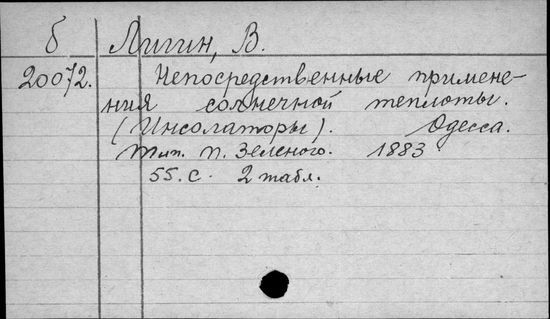 б Лигин, В.
20072. Непосредственные примене-
ния солнечной теплоты.
(Инсолаторы). Одесса.
Тип. П. Зеленого. 1883
55. с. 2 табл.